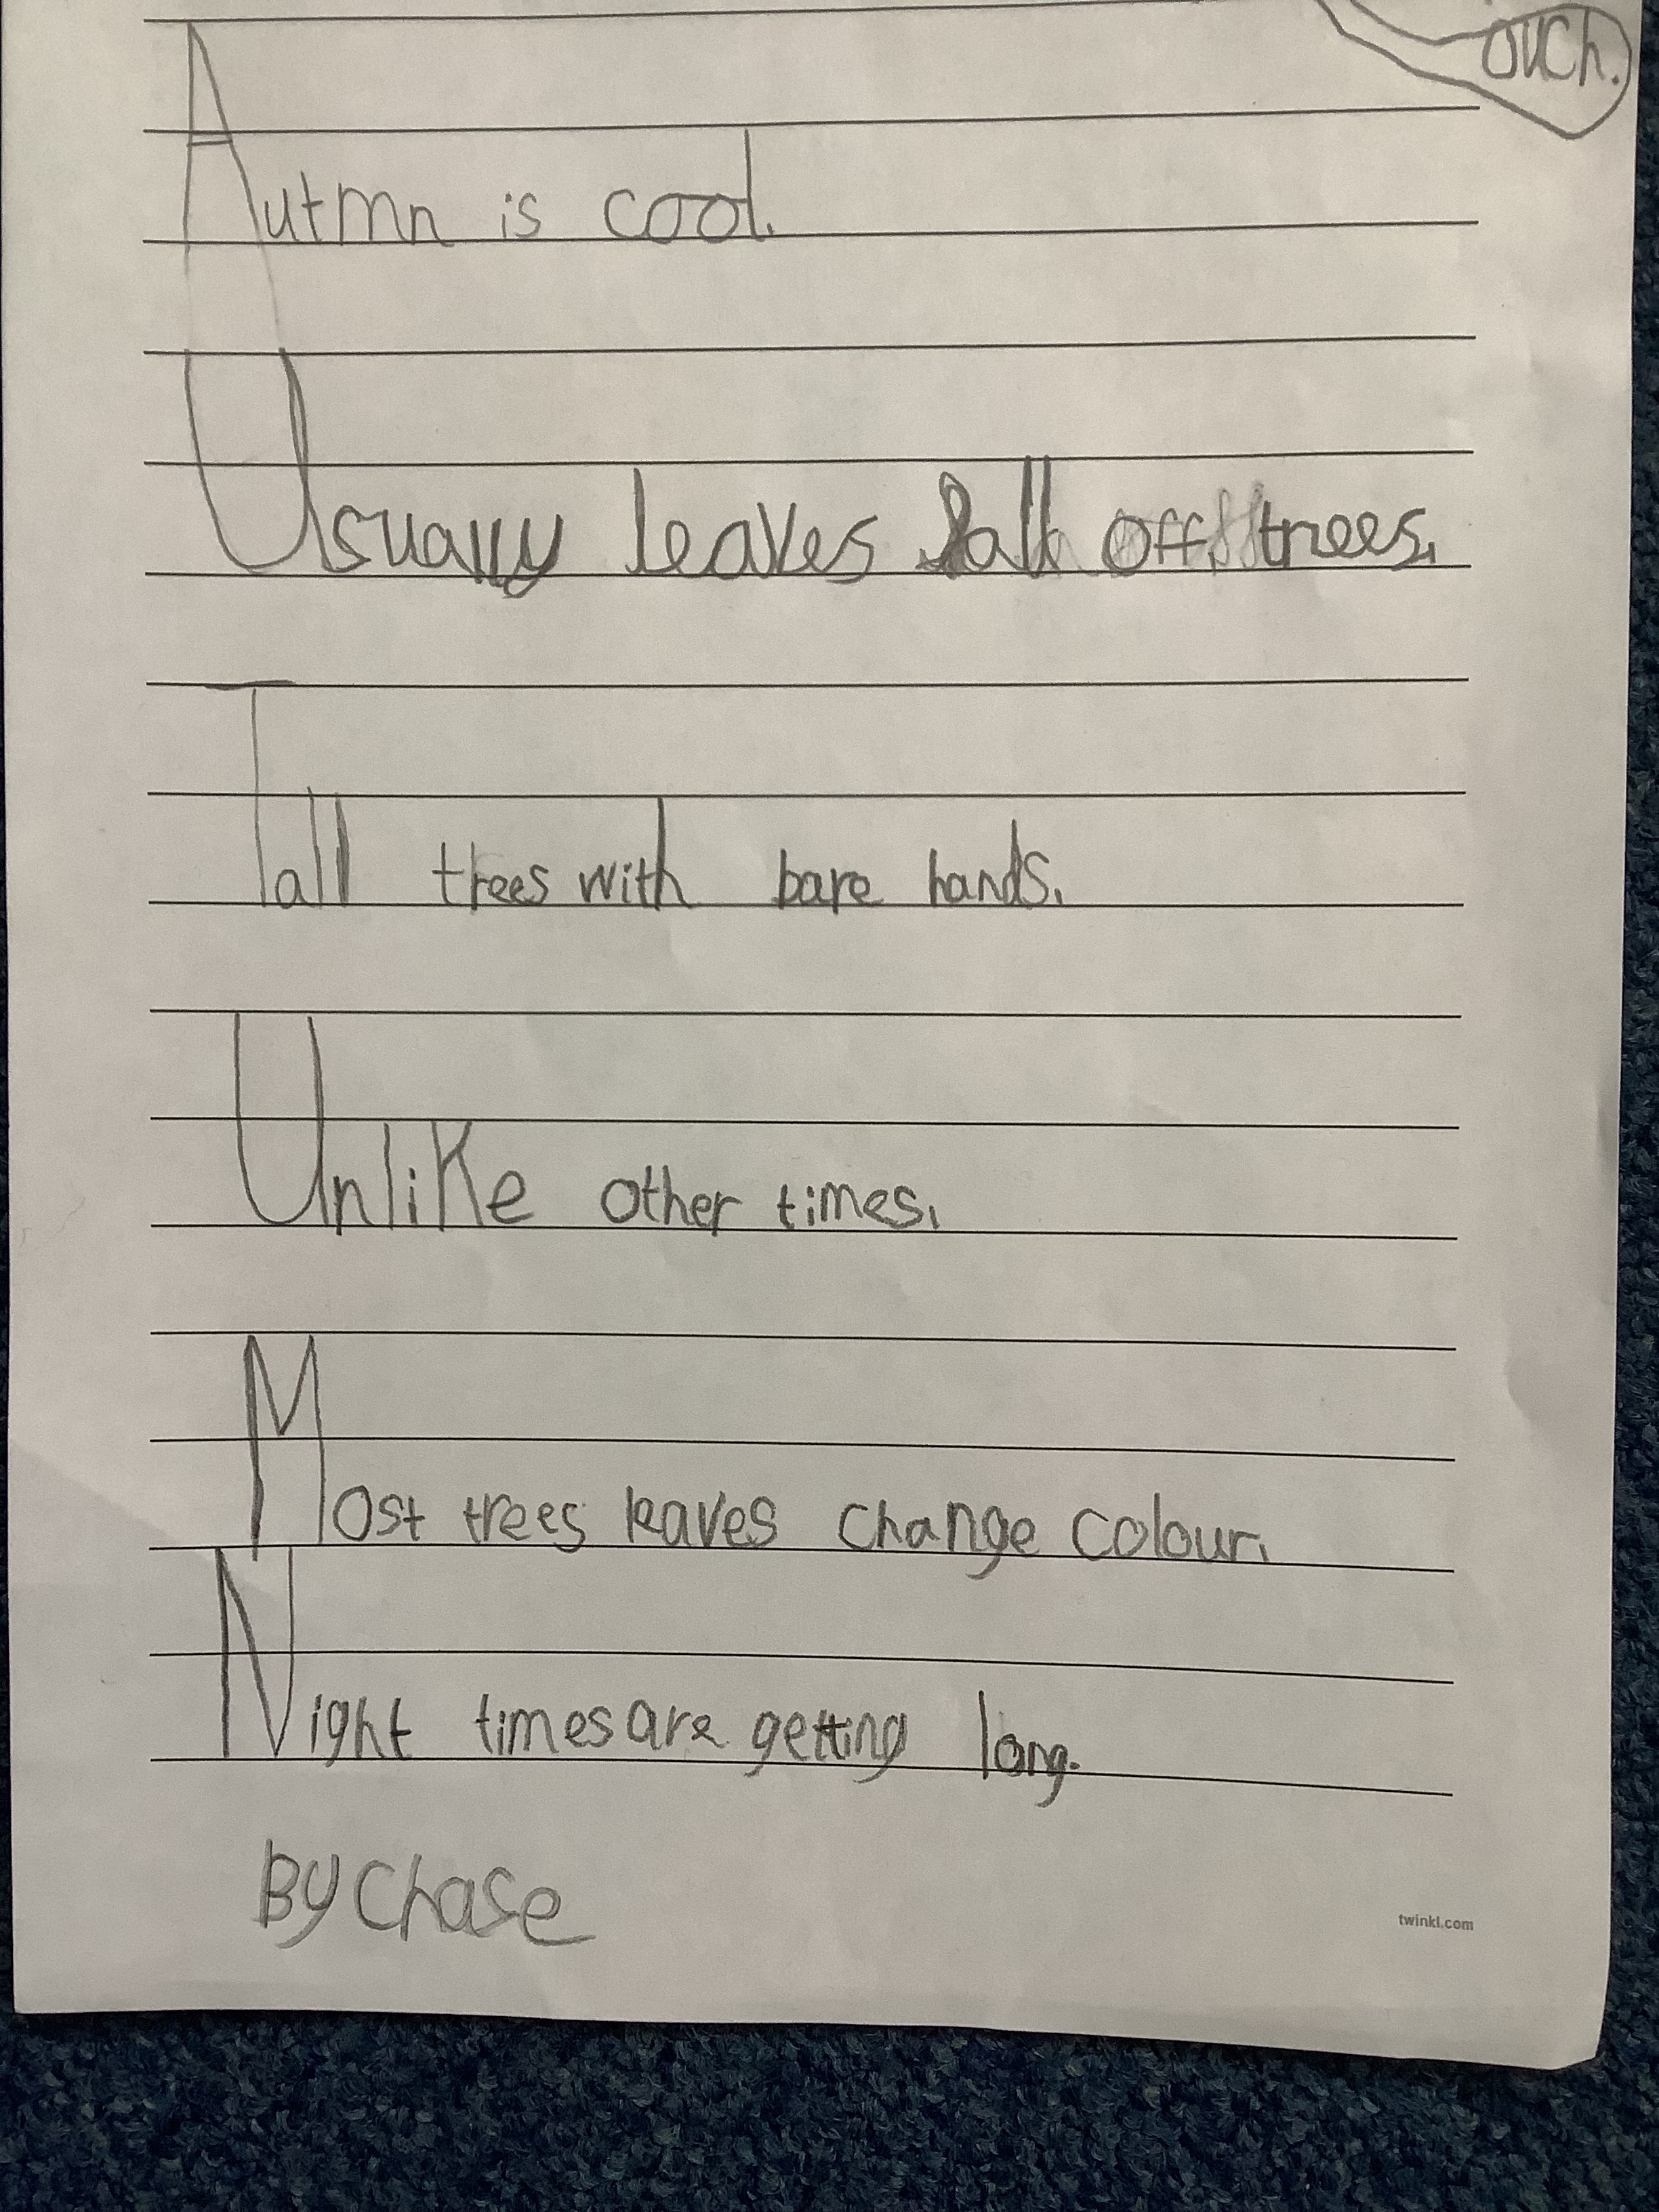 ouch.
Autmn is cool.
Usually leaves fall off trees.
Tall trees with bare hands.
Unlike other times.
Most trees leaves change colour.
Night times are getting long.
By Chase
twinkl.com